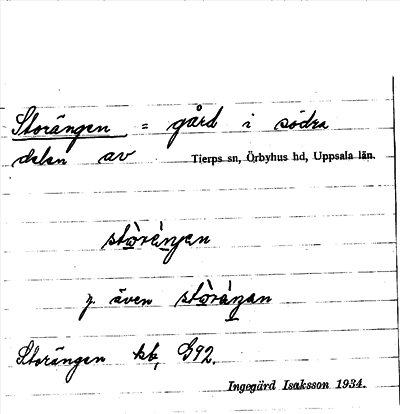 Storängen = gård i södra
delen av Tierps sn, Örbyhus hd, Uppsala län.
stòrèŋen
även stòrèŋan
Storängen kb, G92.
Ingegärd Isaksson 1934.